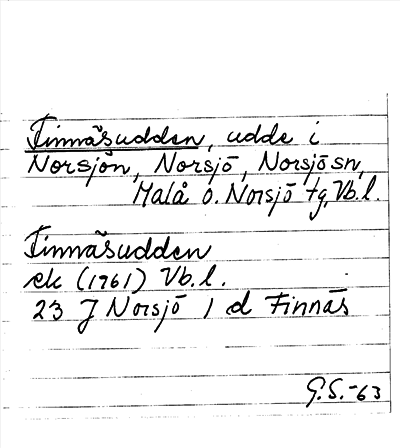 Finnäsudden, udde i
Norsjön, Norsjö, Norsjö sn,
Malå o. Norsjö tg, Vb. l.
Finnäsudden
ek (1961) Vb. l.
23 J Norsjö 1 d Finnäs
G.S.-63